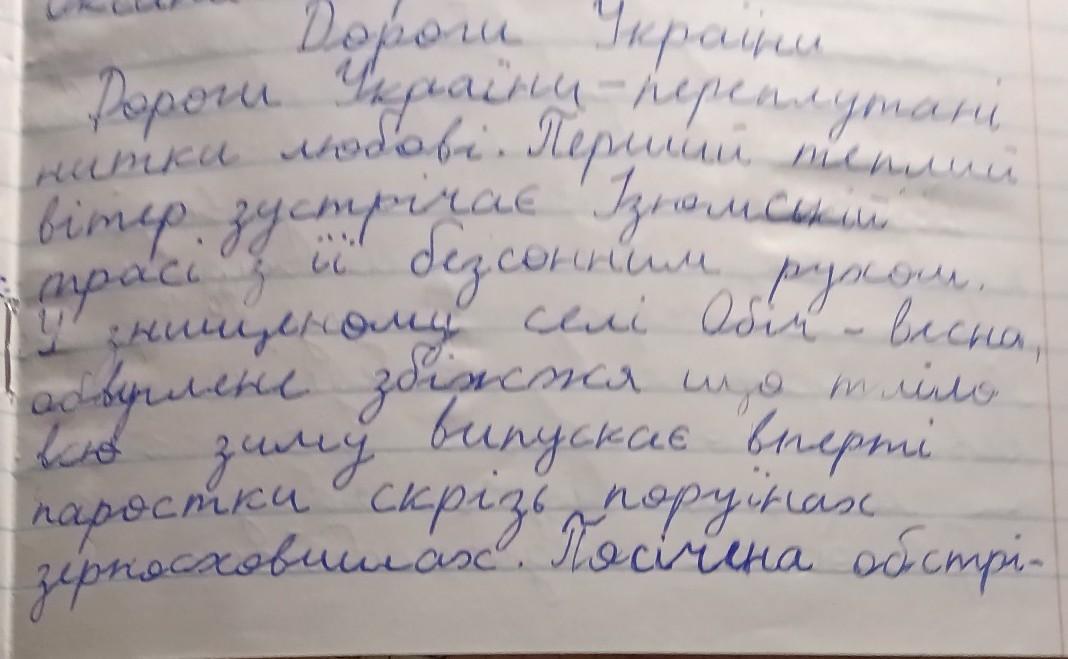 Дороги України
Дороги України - переплутані
нитки любові. Перший теплий
вітер зустрічає Ізюмській
трасі з її безсонним рухом.
У знищеному селі - весна,
обвуглене збіжжя що тліло
всю зиму випускає вперті
паростки скрізь поруїнах
зерносховищах. Посічена обстрі-